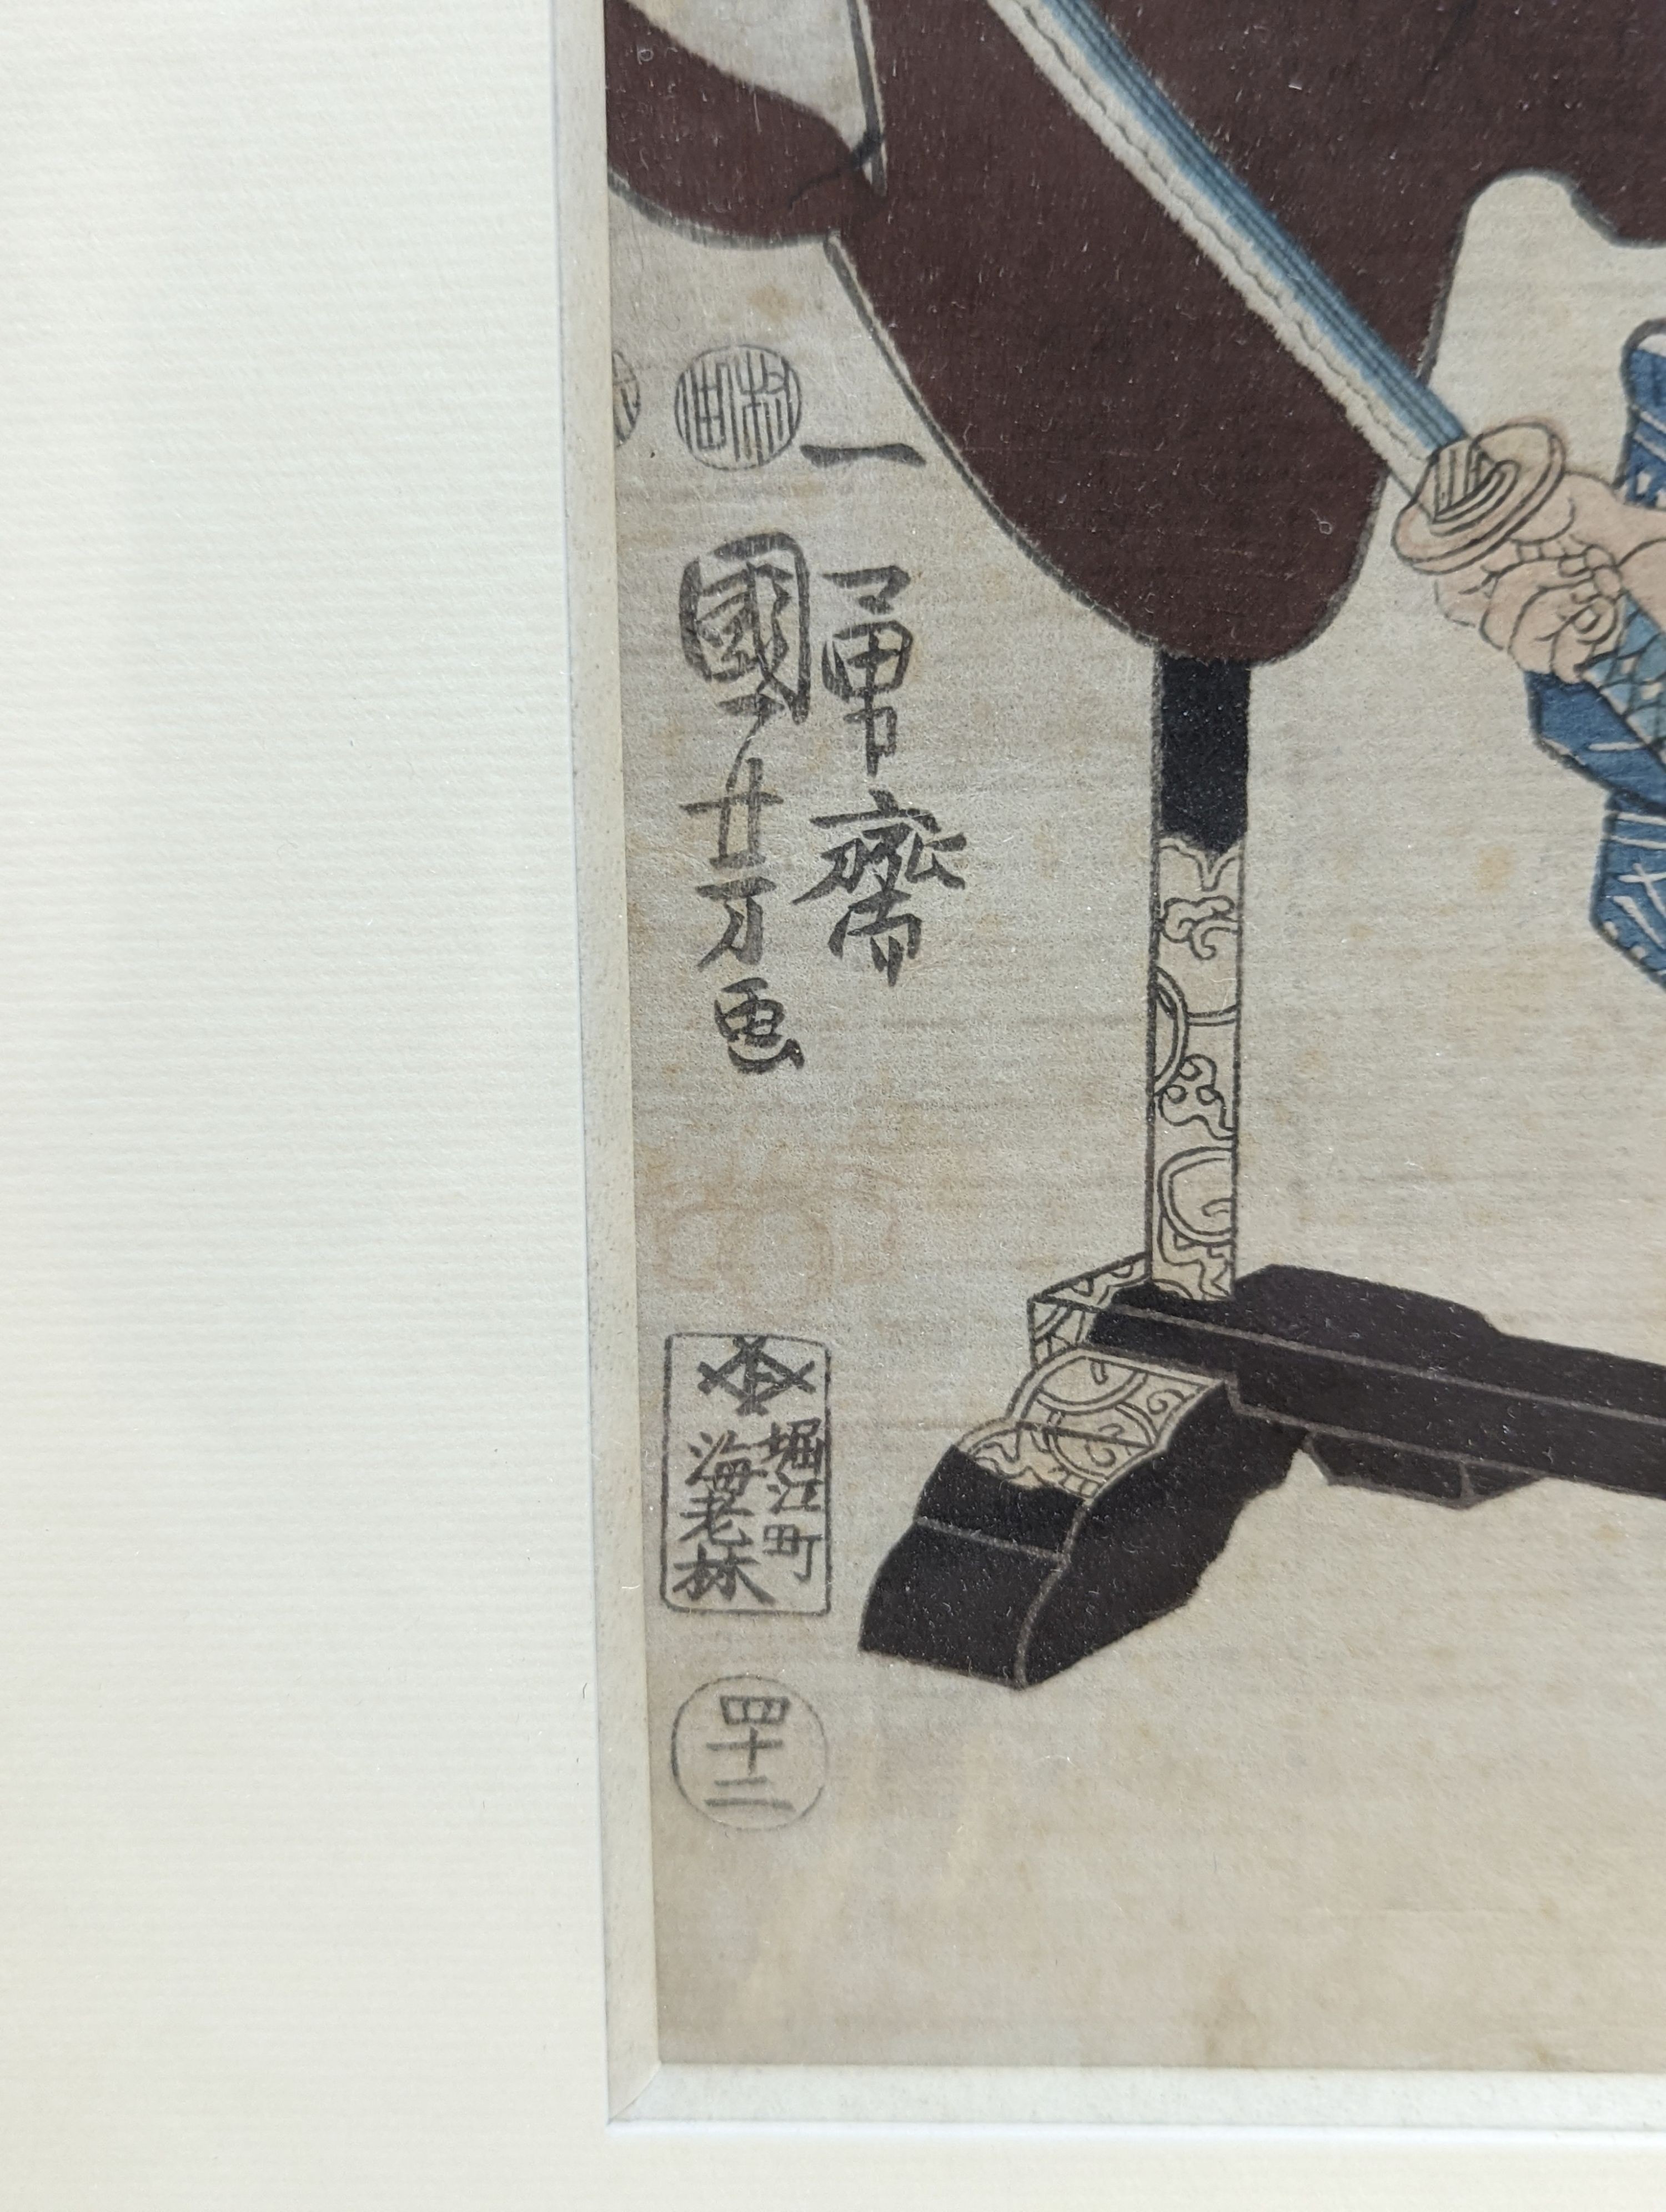 一勇齋
國芳画
堀江町
海老林
四十二